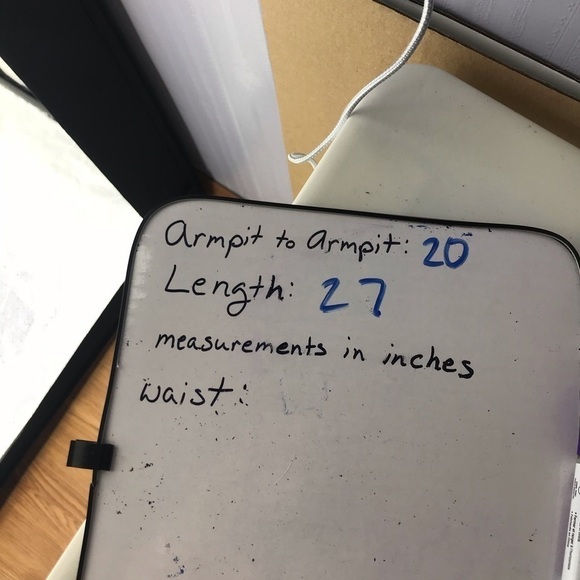 Armpit to Armpit: 20
Length: 27
measurements in inches
waist: